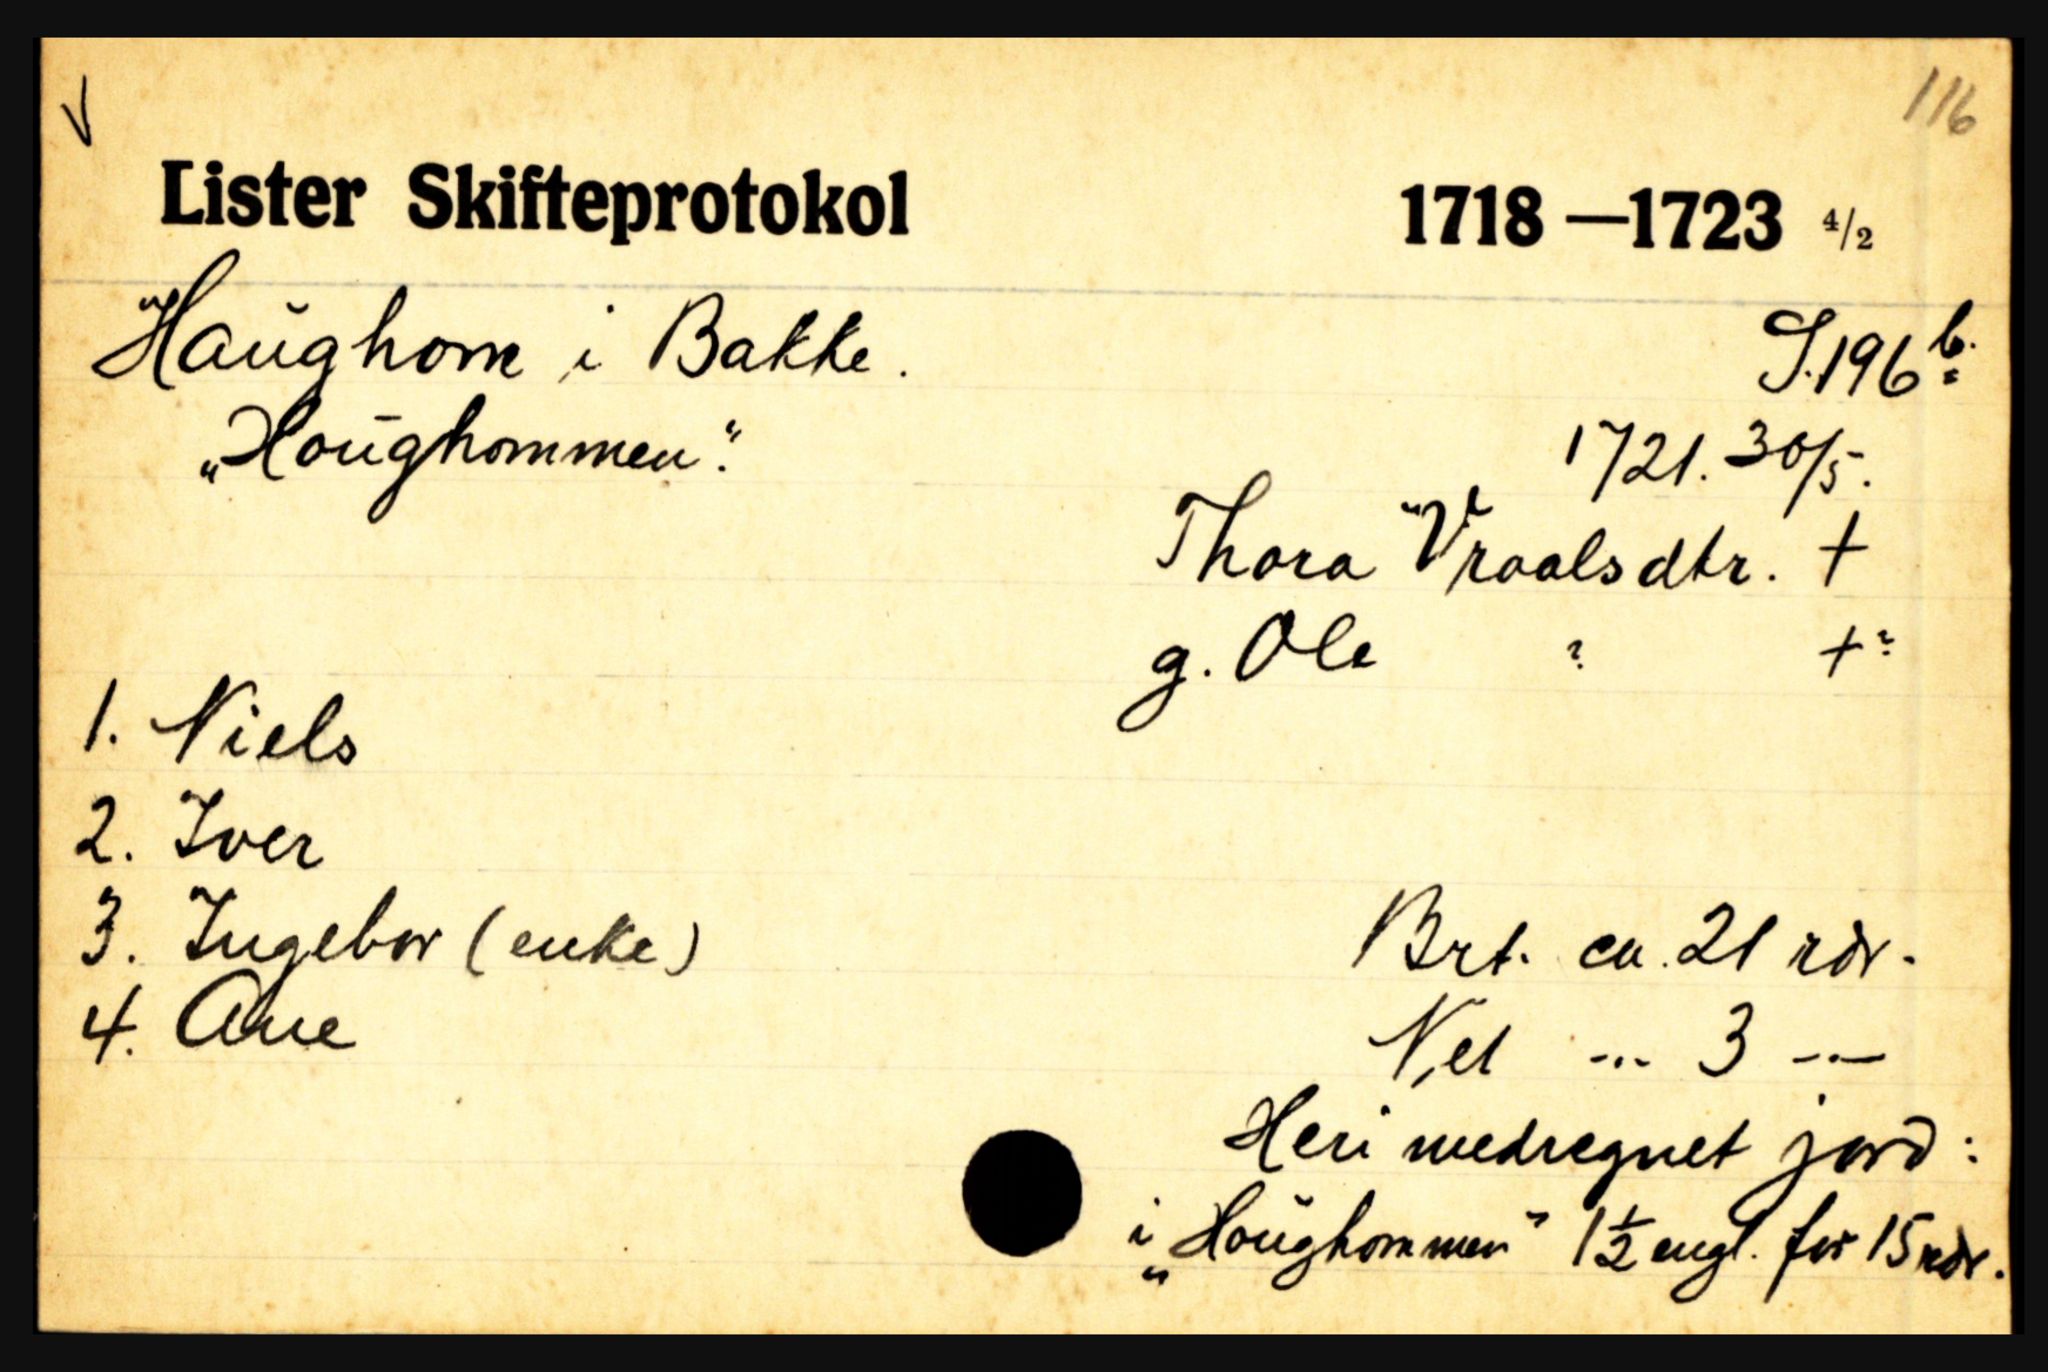 V
116
Lister Skifteprotokol 1718 — 1723 4/2
Haughom i Bakke. S. 196 b.
„Houghommen“. 1721. 30/5.
Thora "Vraalsdtr. +
g. Ole ? +?
1. Niels
2. Iver
3. Ingebor (enke) Brt. ca. 21 rdr.
4. Ane Net --- 3 ---
Heri medregnet jord:
i „Houghommen“ 1½ engl. for 15 rdr.